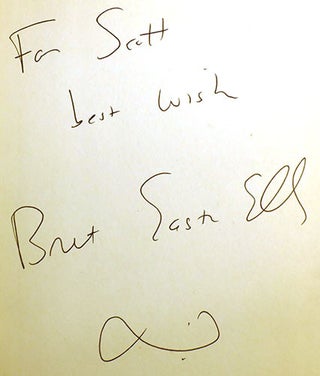 For Scott
best wish
Bret Easton Ellis